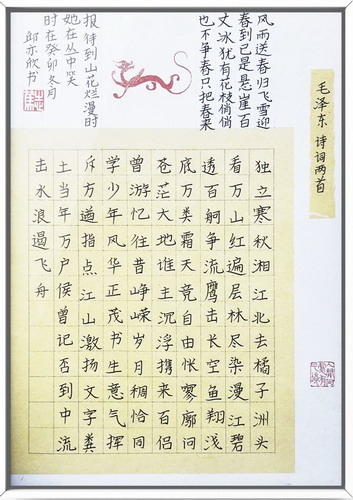 毛泽东 诗词两首
风雨送春归飞雪迎
春到已是悬崖百
丈冰犹有花枝俏俏
也不争春只把春来
报待到山花烂漫时
她在丛中笑
时在癸卯冬月
邱亦欣书
独立寒秋湘江北去橘子洲头
看万山红遍层林尽染漫江碧
透百舸争流鹰击长空鱼翔浅
底万类霜天竞自由怅寥廓问
苍茫大地谁主沉浮携来百侣
曾游忆往昔峥嵘岁月稠恰同
学少年风华正茂书生意气挥
斥方遒指点江山激扬文字粪
土当年万户侯曾记否到中流
击水浪遏飞舟